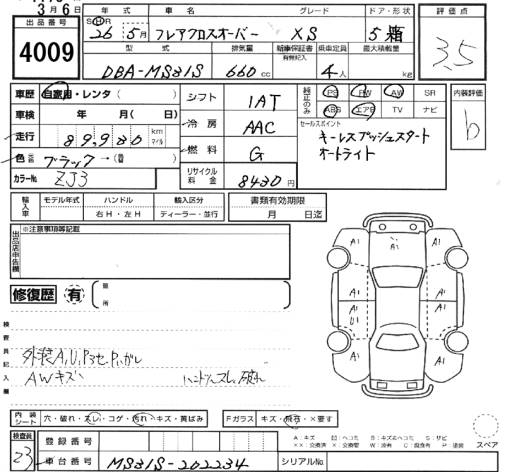 3月6日
出品番号
4009
年式 車名 グレード ドア・形状
S H R
26年 5月 フレアクロスオーバー XS 5 箱
型式 排気量 新車保証書 有無記入 乗車定員 最大積載量
DBA-MS31S 660cc 4人 kg
評価点
3.5
内装評価
b
車歴 自家用・レンタ( )
車検 年 月( 日)
走行 89,930 km マイル
色 ブラック→( )
カラーNo. ZJ3
シフト 1AT
冷房 AAC
燃料 G
リサイクル料金 8430円
純正のみ PS PW AW SR
ABS エアB TV ナビ
セールスポイント
キーレスプッシュスタート
オートライト
輸入車 モデル年式 ハンドル 輸入区分
右H・左H ディーラー・並行
書類有効期限
月 日迄
出品店申告欄
※注意事項等記載
修復歴 有 箇所
検査員記入欄
外装A,U,P3セP,ガレ
AWキズ
A1 A1 A1
A1 A1
U1 U1
A1 A1
内装シート 穴・破れ・スレ・コゲ・汚れ・キズ・黄ばみ
Fガラス キズ・飛石・×要す
A:キズ U:ヘコミ B:キズ&ヘコミ S:サビ
××:交換済 ×:交換要 W:波有 C:腐食有 P:塗装
スペア
検査員
23
登録番号
車台番号 MS31S-202234
シリアルNo.